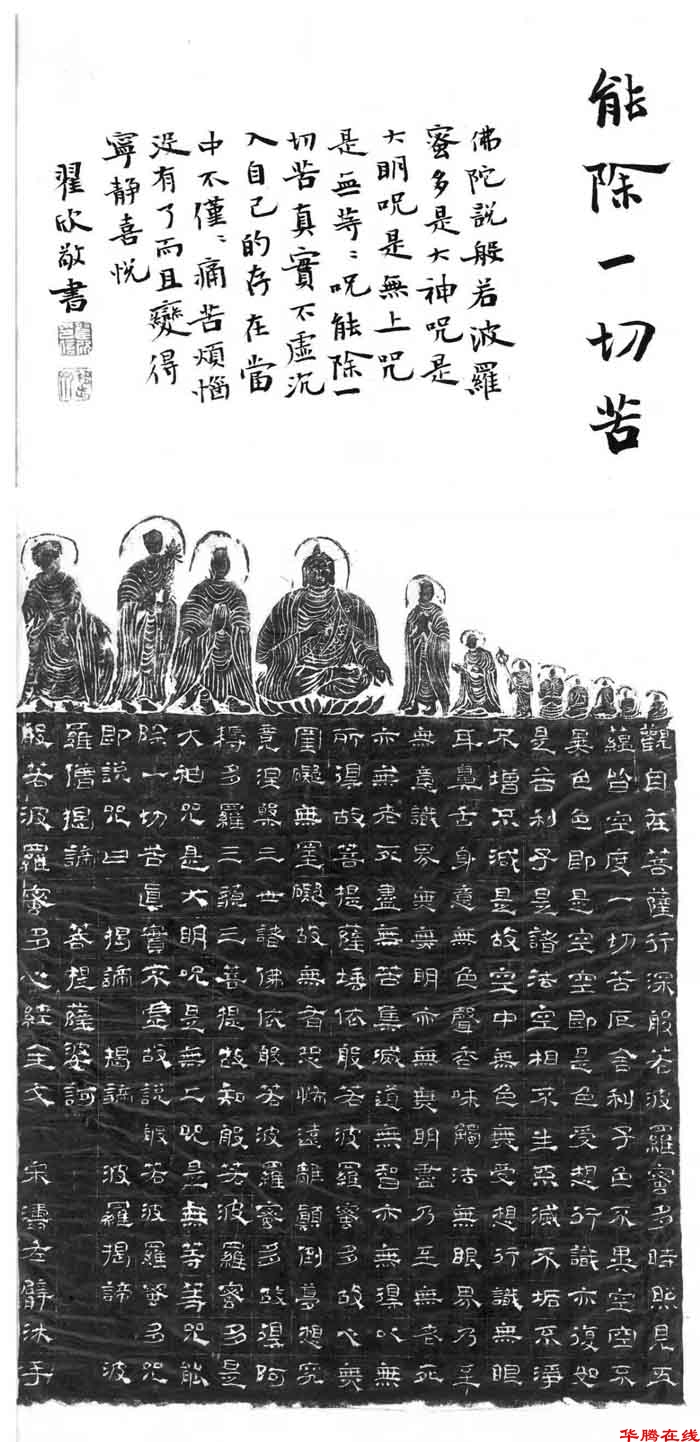 能除一切苦
佛陀説般若波羅
蜜多是大神咒是
大明咒是無上咒
是無等〻咒能除一
切苦真實不虛沉
入自己的存在當
中不僅〻痛苦煩惱
没有了而且變得
寧靜喜悦
翟欣敬書
觀自在菩薩行深般若波羅蜜多時照見五
蘊皆空度一切苦厄舍利子色不異空空不
異色色即是空空即是色受想行識亦復如
是舍利子是諸法空相不生不滅不垢不淨
不增不減是故空中無色無受想行識無眼
耳鼻舌身意無色聲香味觸法無眼界乃至
無意識界無無明亦無無明盡乃至無老死
亦無老死盡無苦集滅道無智亦無得以無
所得故菩提薩埵依般若波羅蜜多故心無
罣礙無罣礙故無有恐怖遠離顛倒夢想究
竟涅槃三世諸佛依般若波羅蜜多故得阿
耨多羅三藐三菩提故知般若波羅蜜多是
大神咒是大明咒是無上咒是無等等咒能
除一切苦真實不虛故説般若波羅蜜多咒
即説咒曰 揭諦 揭諦 波羅揭諦 波
羅僧揭諦 菩提薩婆訶
般若波羅蜜多心經全文 宋濤左臂沐手
华腾在线